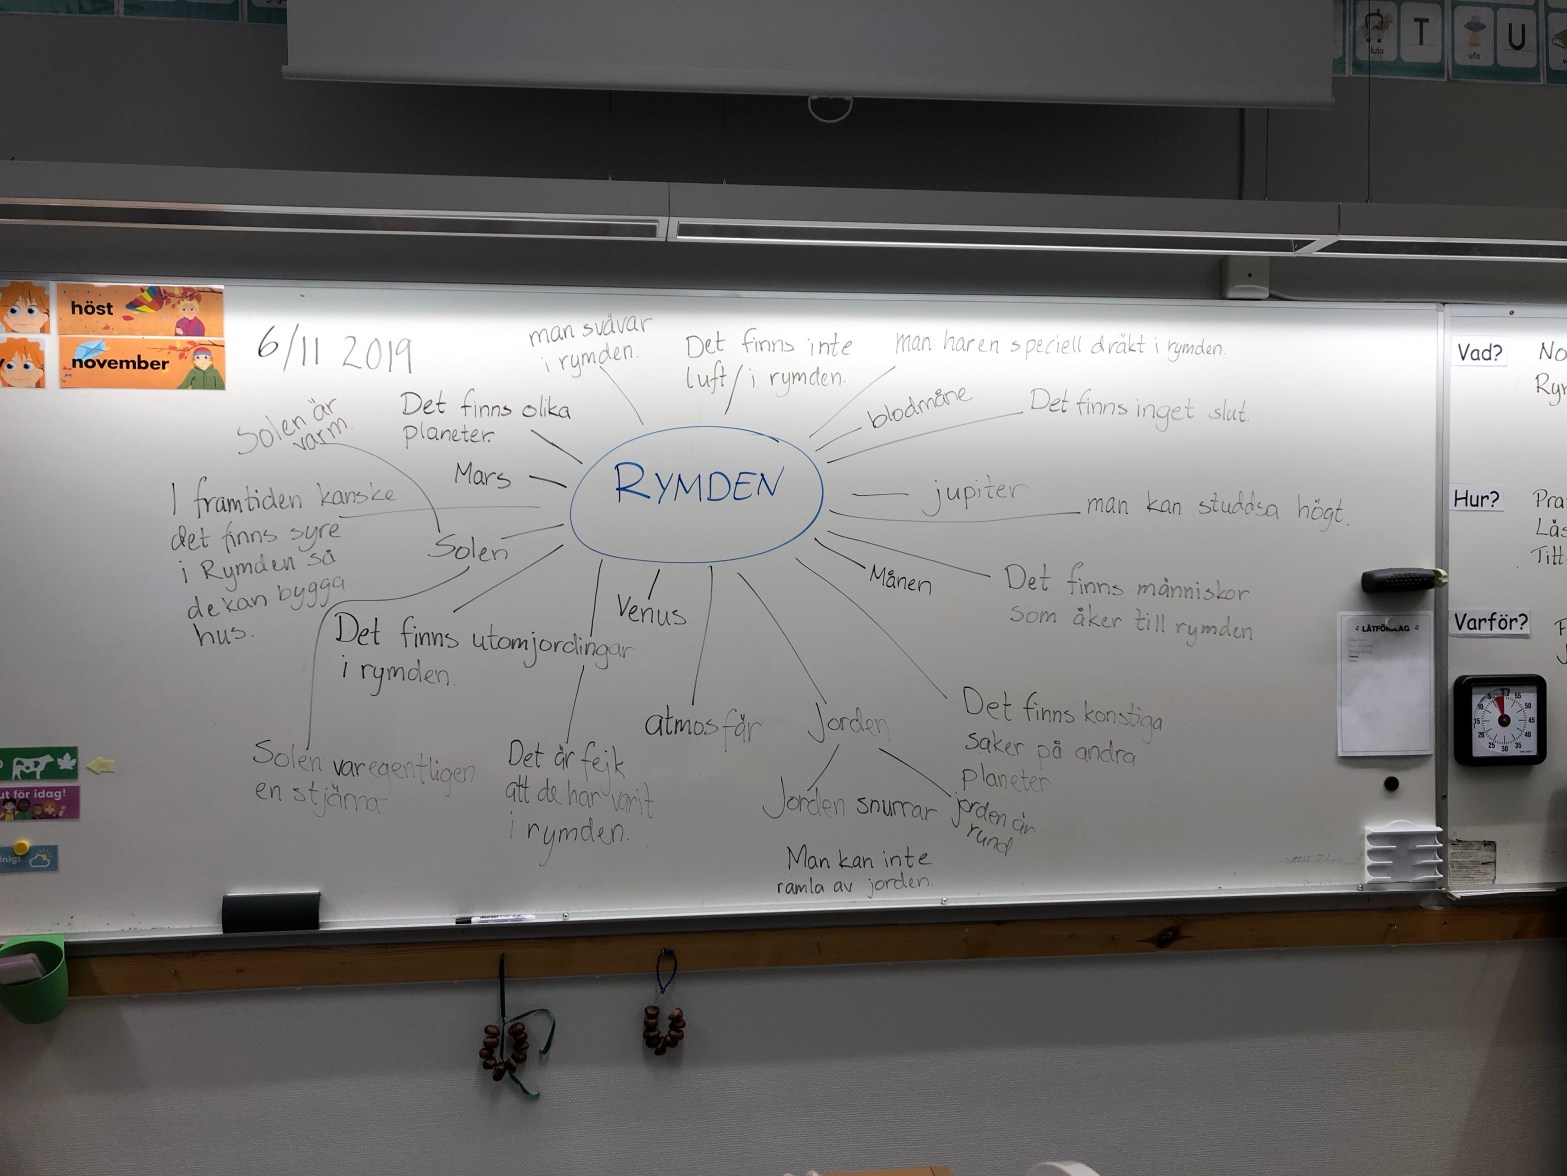 lula
T
ufo
U
höst
november
6/11 2019
man svävar
i rymden.
Det finns inte
luft i rymden.
man har en speciell dräkt i rymden.
blodmåne
Det finns inget slut.
Solen är
varm.
Det finns olika
planeter.
Mars
RYMDEN
jupiter
man kan studdsa högt.
I framtiden kanske
det finns syre
i Rymden så
de kan bygga
hus.
Solen
Venus
Månen
Det finns människor
som åker till rymden
Det finns utomjordingar
i rymden.
atmosfär
Jorden
Det finns konstiga
saker på andra
planeter
Solen var egentligen
en stjärna
Det är fejk
att de har varit
i rymden.
Jorden snurrar
jorden är
rund
Man kan inte
ramla av jorden.
ut för idag!
LÅTFÖRSLAG
Vad?
No
Ry
Hur?
Pra
Läs
Titt
Varför?
F
J
5
55
10
50
15
45
20
40
25
30
35